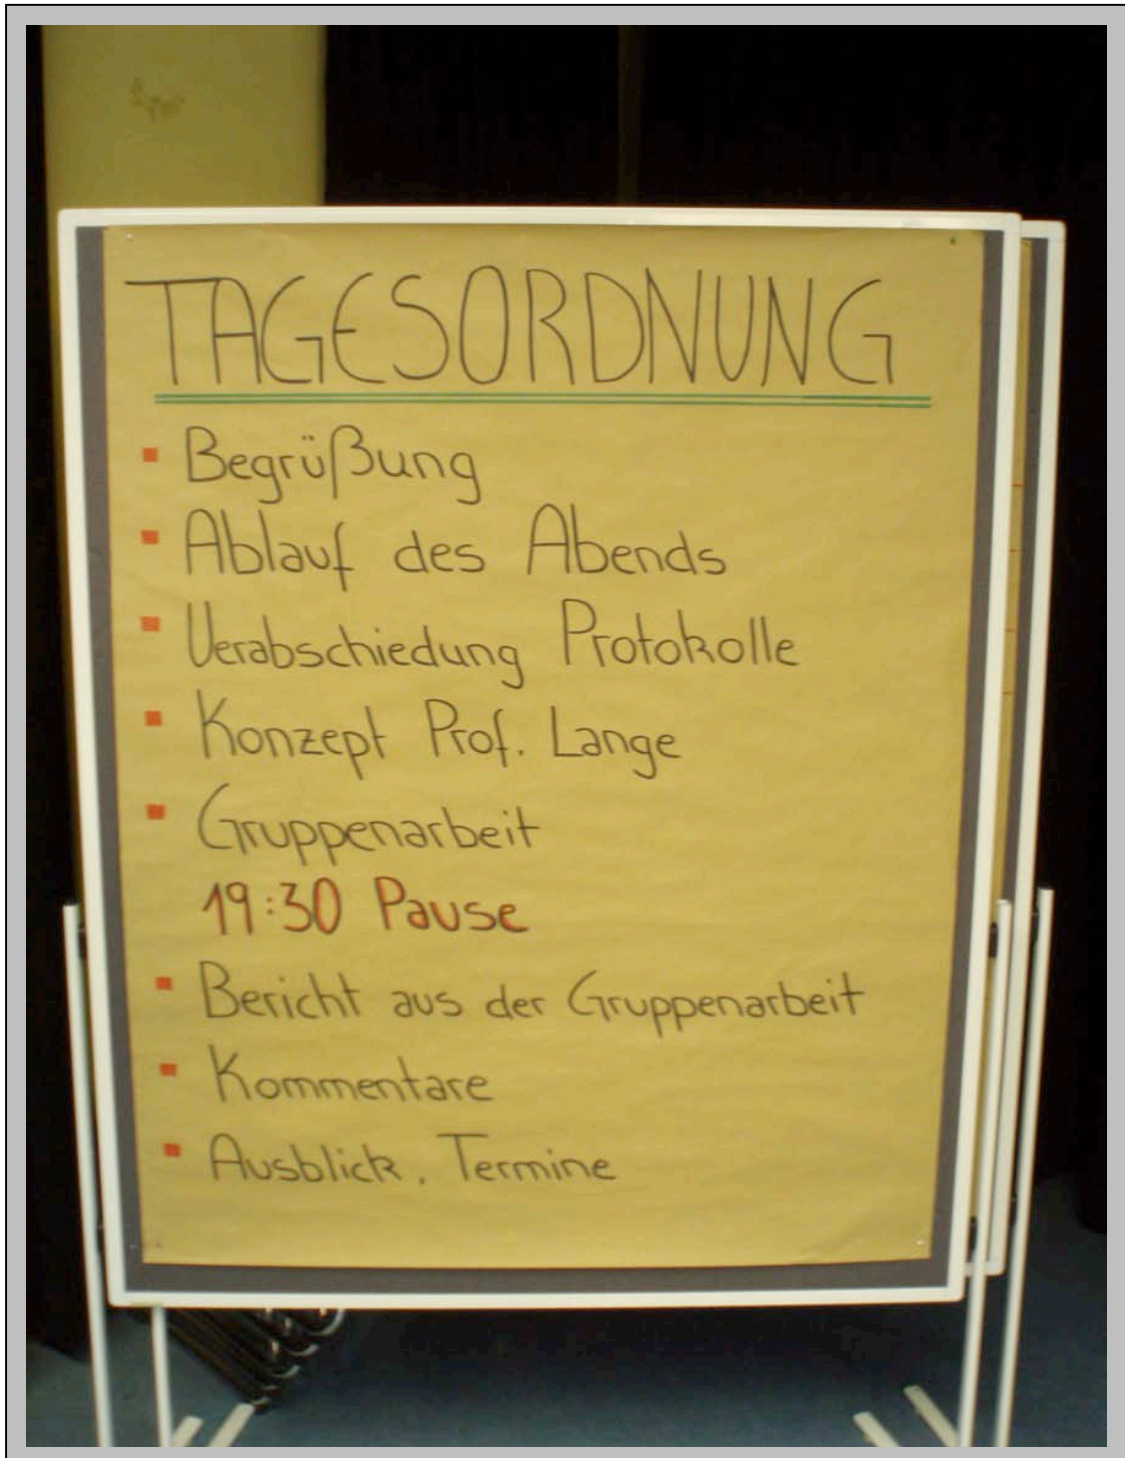 TAGESORDNUNG
▪ Begrüßung
▪ Ablauf des Abends
▪ Verabschiedung Protokolle
▪ Konzept Prof. Lange
▪ Gruppenarbeit
19:30 Pause
▪ Bericht aus der Gruppenarbeit
▪ Kommentare
▪ Ausblick, Termine